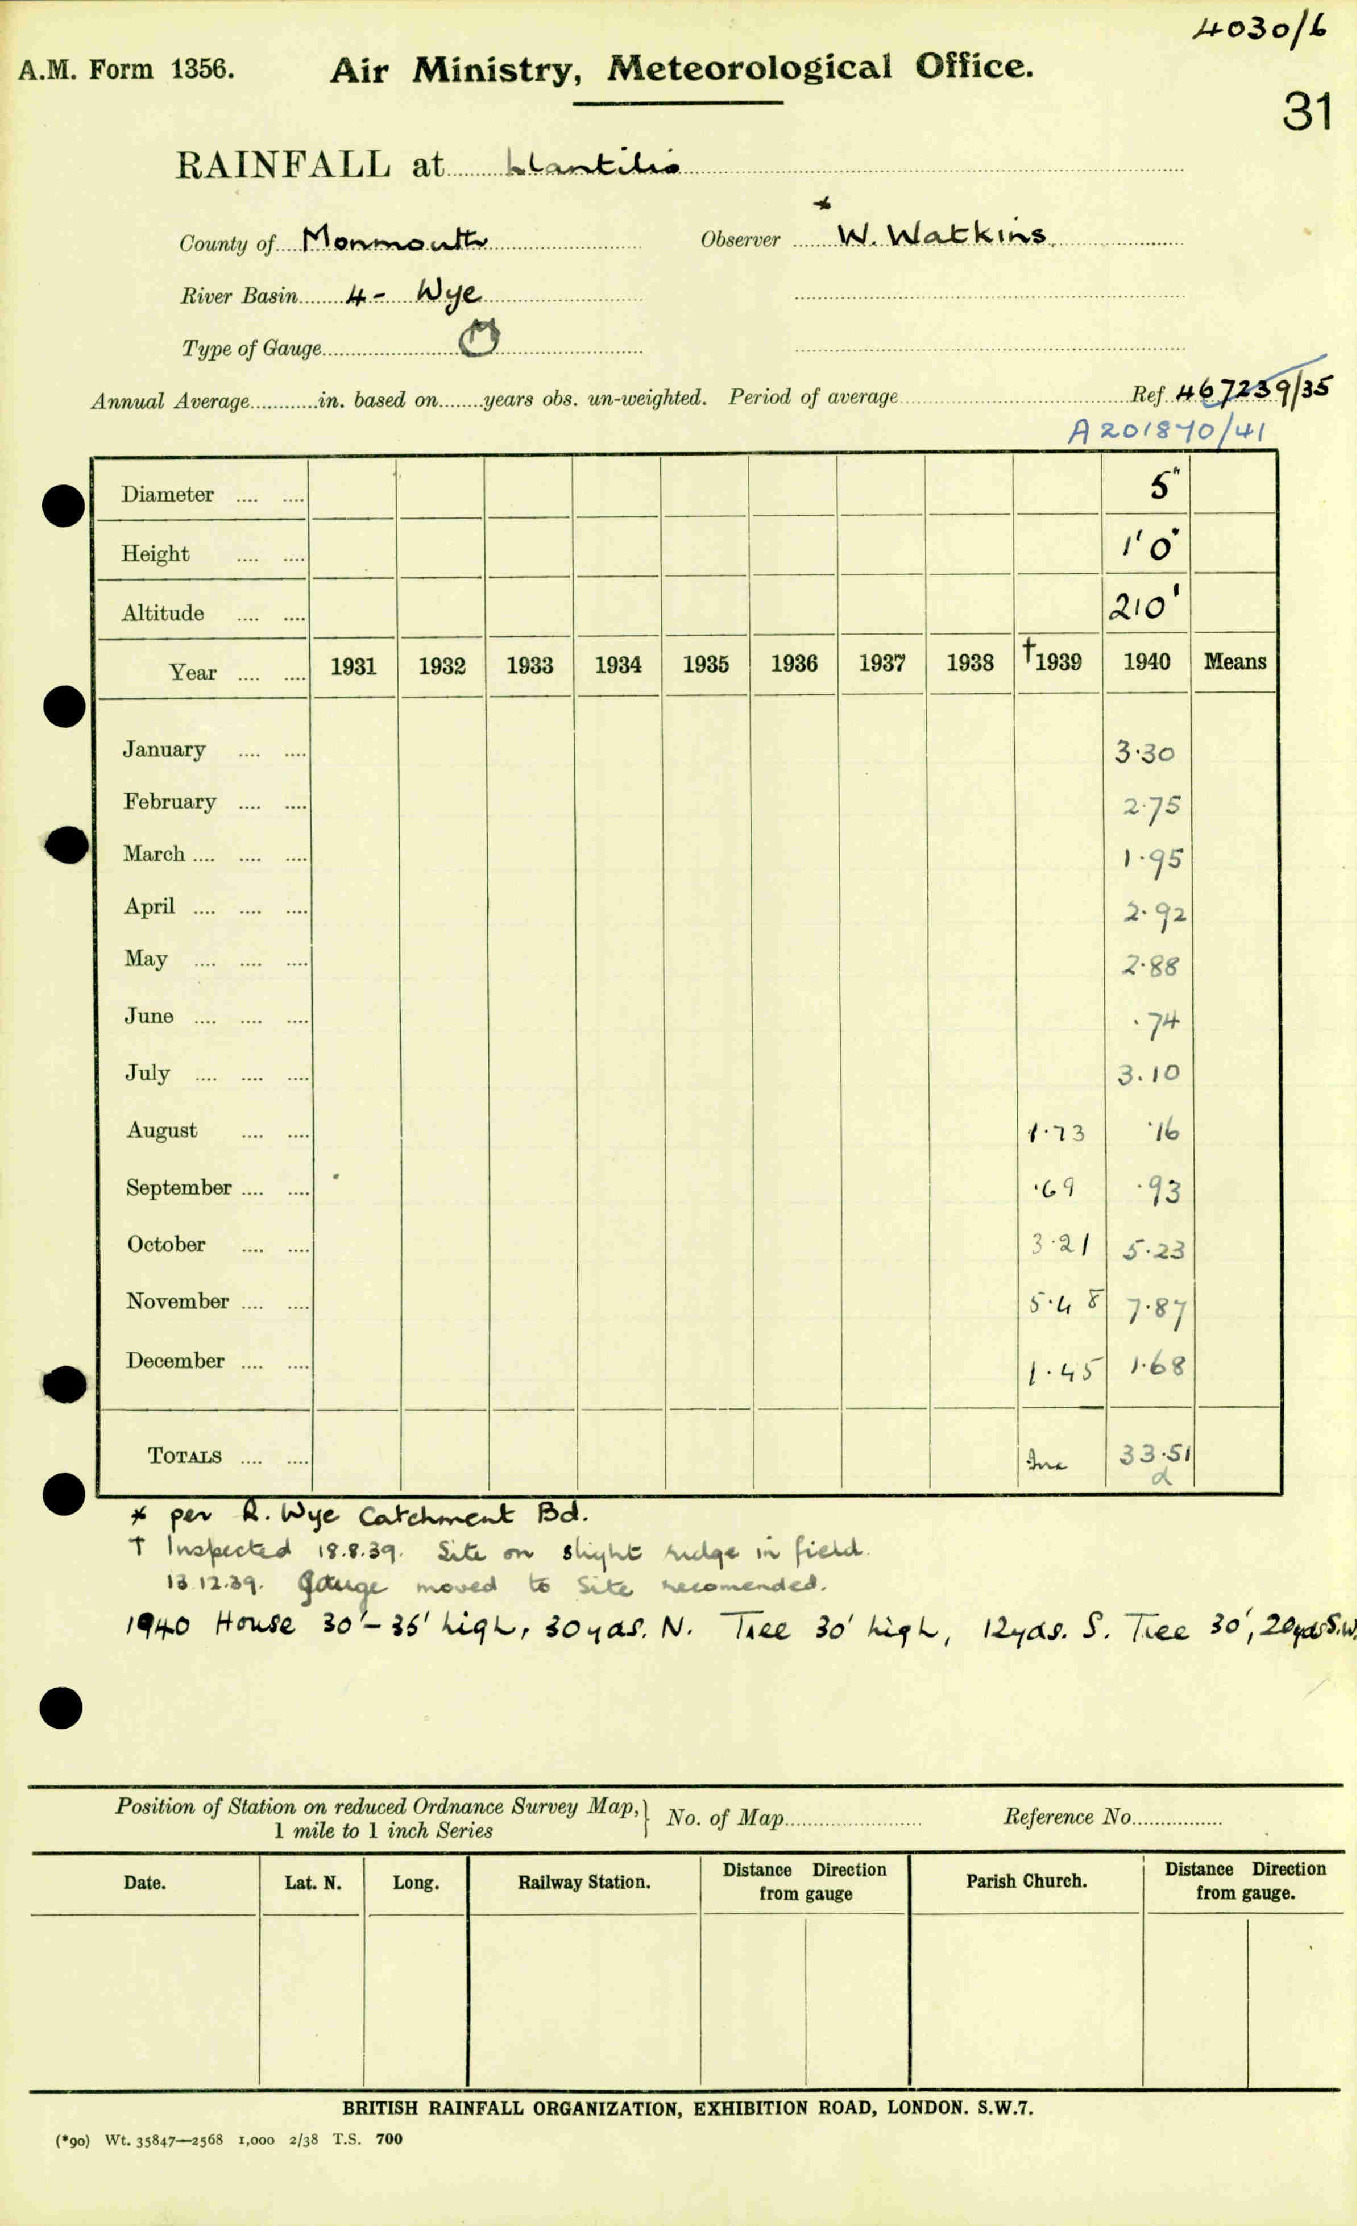 4030/6
A.M. Form 1356. Air Ministry, Meteorological Office.
31
RAINFALL at Llantilio
*
County of Monmouth Observer W. Watkins.
River Basin 4 - Wye
Type of Gauge M
Annual Average in. based on years obs. un-weighted. Period of average Ref. 467239/35
A201870/41
Diameter .... .... 5"
Height .... .... 1'0"
Altitude .... .... 210'
Year .... .... 1931 1932 1933 1934 1935 1936 1937 1938 †1939 1940 Means
January .... .... 3.30
February .... .... 2.75
March .... .... .... 1.95
April .... .... .... 2.92
May .... .... .... 2.88
June .... .... .... .74
July .... .... .... 3.10
August .... .... 1.73 .16
September .... .... .69 .93
October .... .... 3.21 5.23
November .... .... 5.48 7.87
December .... .... 1.45 1.68
TOTALS .... .... Inc 33.51
d
* per R. Wye Catchment Bd.
† Inspected 18.8.39. Site on slight ridge in field.
13.12.39. Gauge moved to site recomended.
1940 House 30'-35' high, 30yds. N. Tree 30' high, 12yds. S. Tree 30', 20yds S.W.
Position of Station on reduced Ordnance Survey Map,} No. of Map Reference No.
1 mile to 1 inch Series
Date. Lat. N. Long. Railway Station. Distance Direction from gauge Parish Church. Distance Direction from gauge.
BRITISH RAINFALL ORGANIZATION, EXHIBITION ROAD, LONDON. S.W.7.
(*90) Wt. 35847—2568 1,000 2/38 T.S. 700